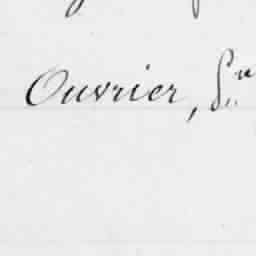 Ouvrier, Sr